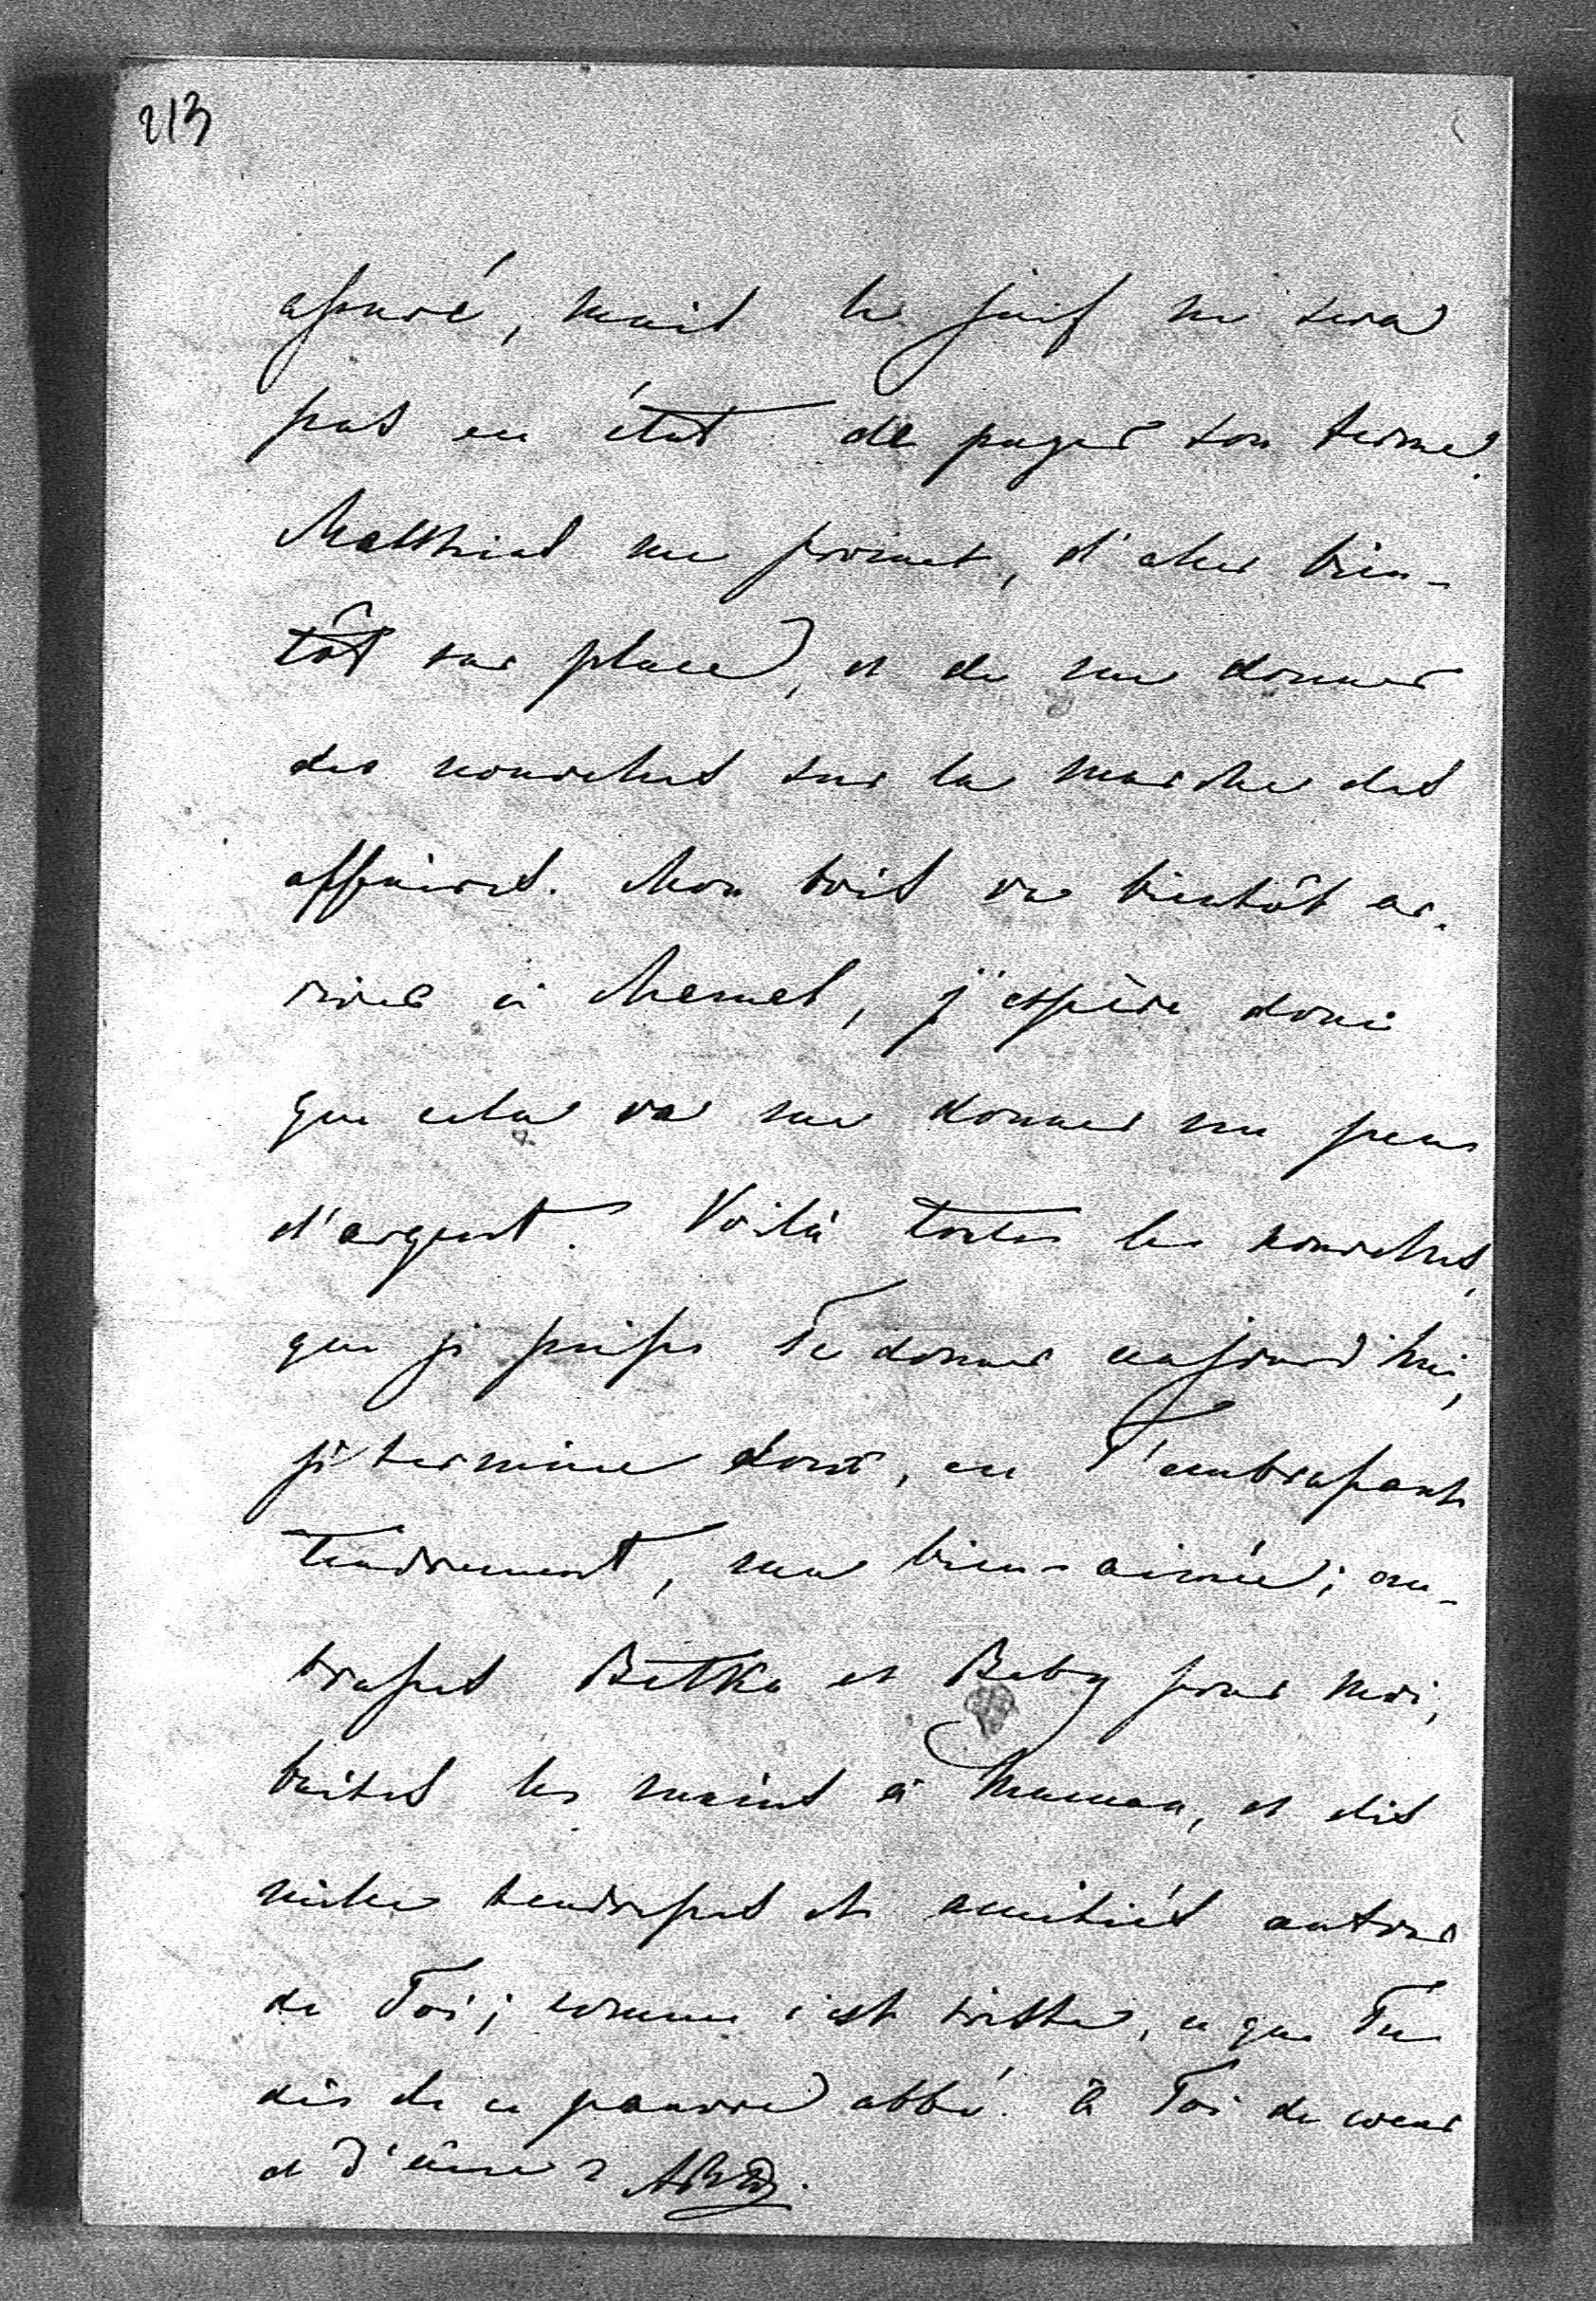 213
assuré, mais le juif ne sera
pas en état de payer son terme.
Matthias me promet, d'aller bien-
tôt sur place, et de me donner
des nouvelles sur la marche des
affaires. Mon bois va bientôt ar-
river à Memel, j'espère donc
que cela va me donner un peu
d'argent. Voilà toutes les nouvelles,
que je puisse Te donner aujourd'hui,
je termine donc, en T'embrassant
tendrement, ma bien-aimée; em-
brasses Betka et Baby pour moi,
baises les mains à Maman, et dis
mille tendresses et amitiés autour
de Toi; comme c'est triste, ce que Tu
dis de ce pauvre abbé. à Toi de coeur
et d'âme